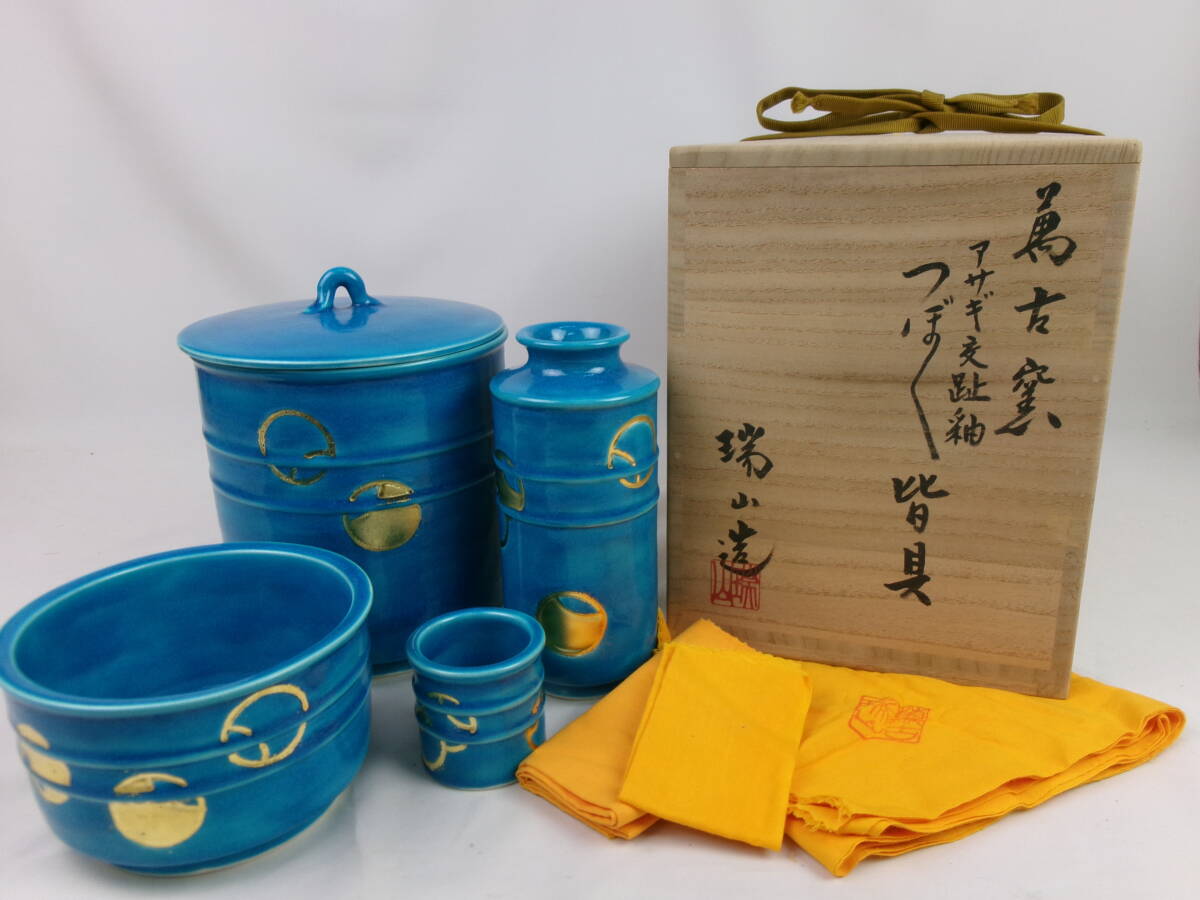 萬古窯
アサギ交趾釉
つぼ〱
皆具
瑞山造
瑞山